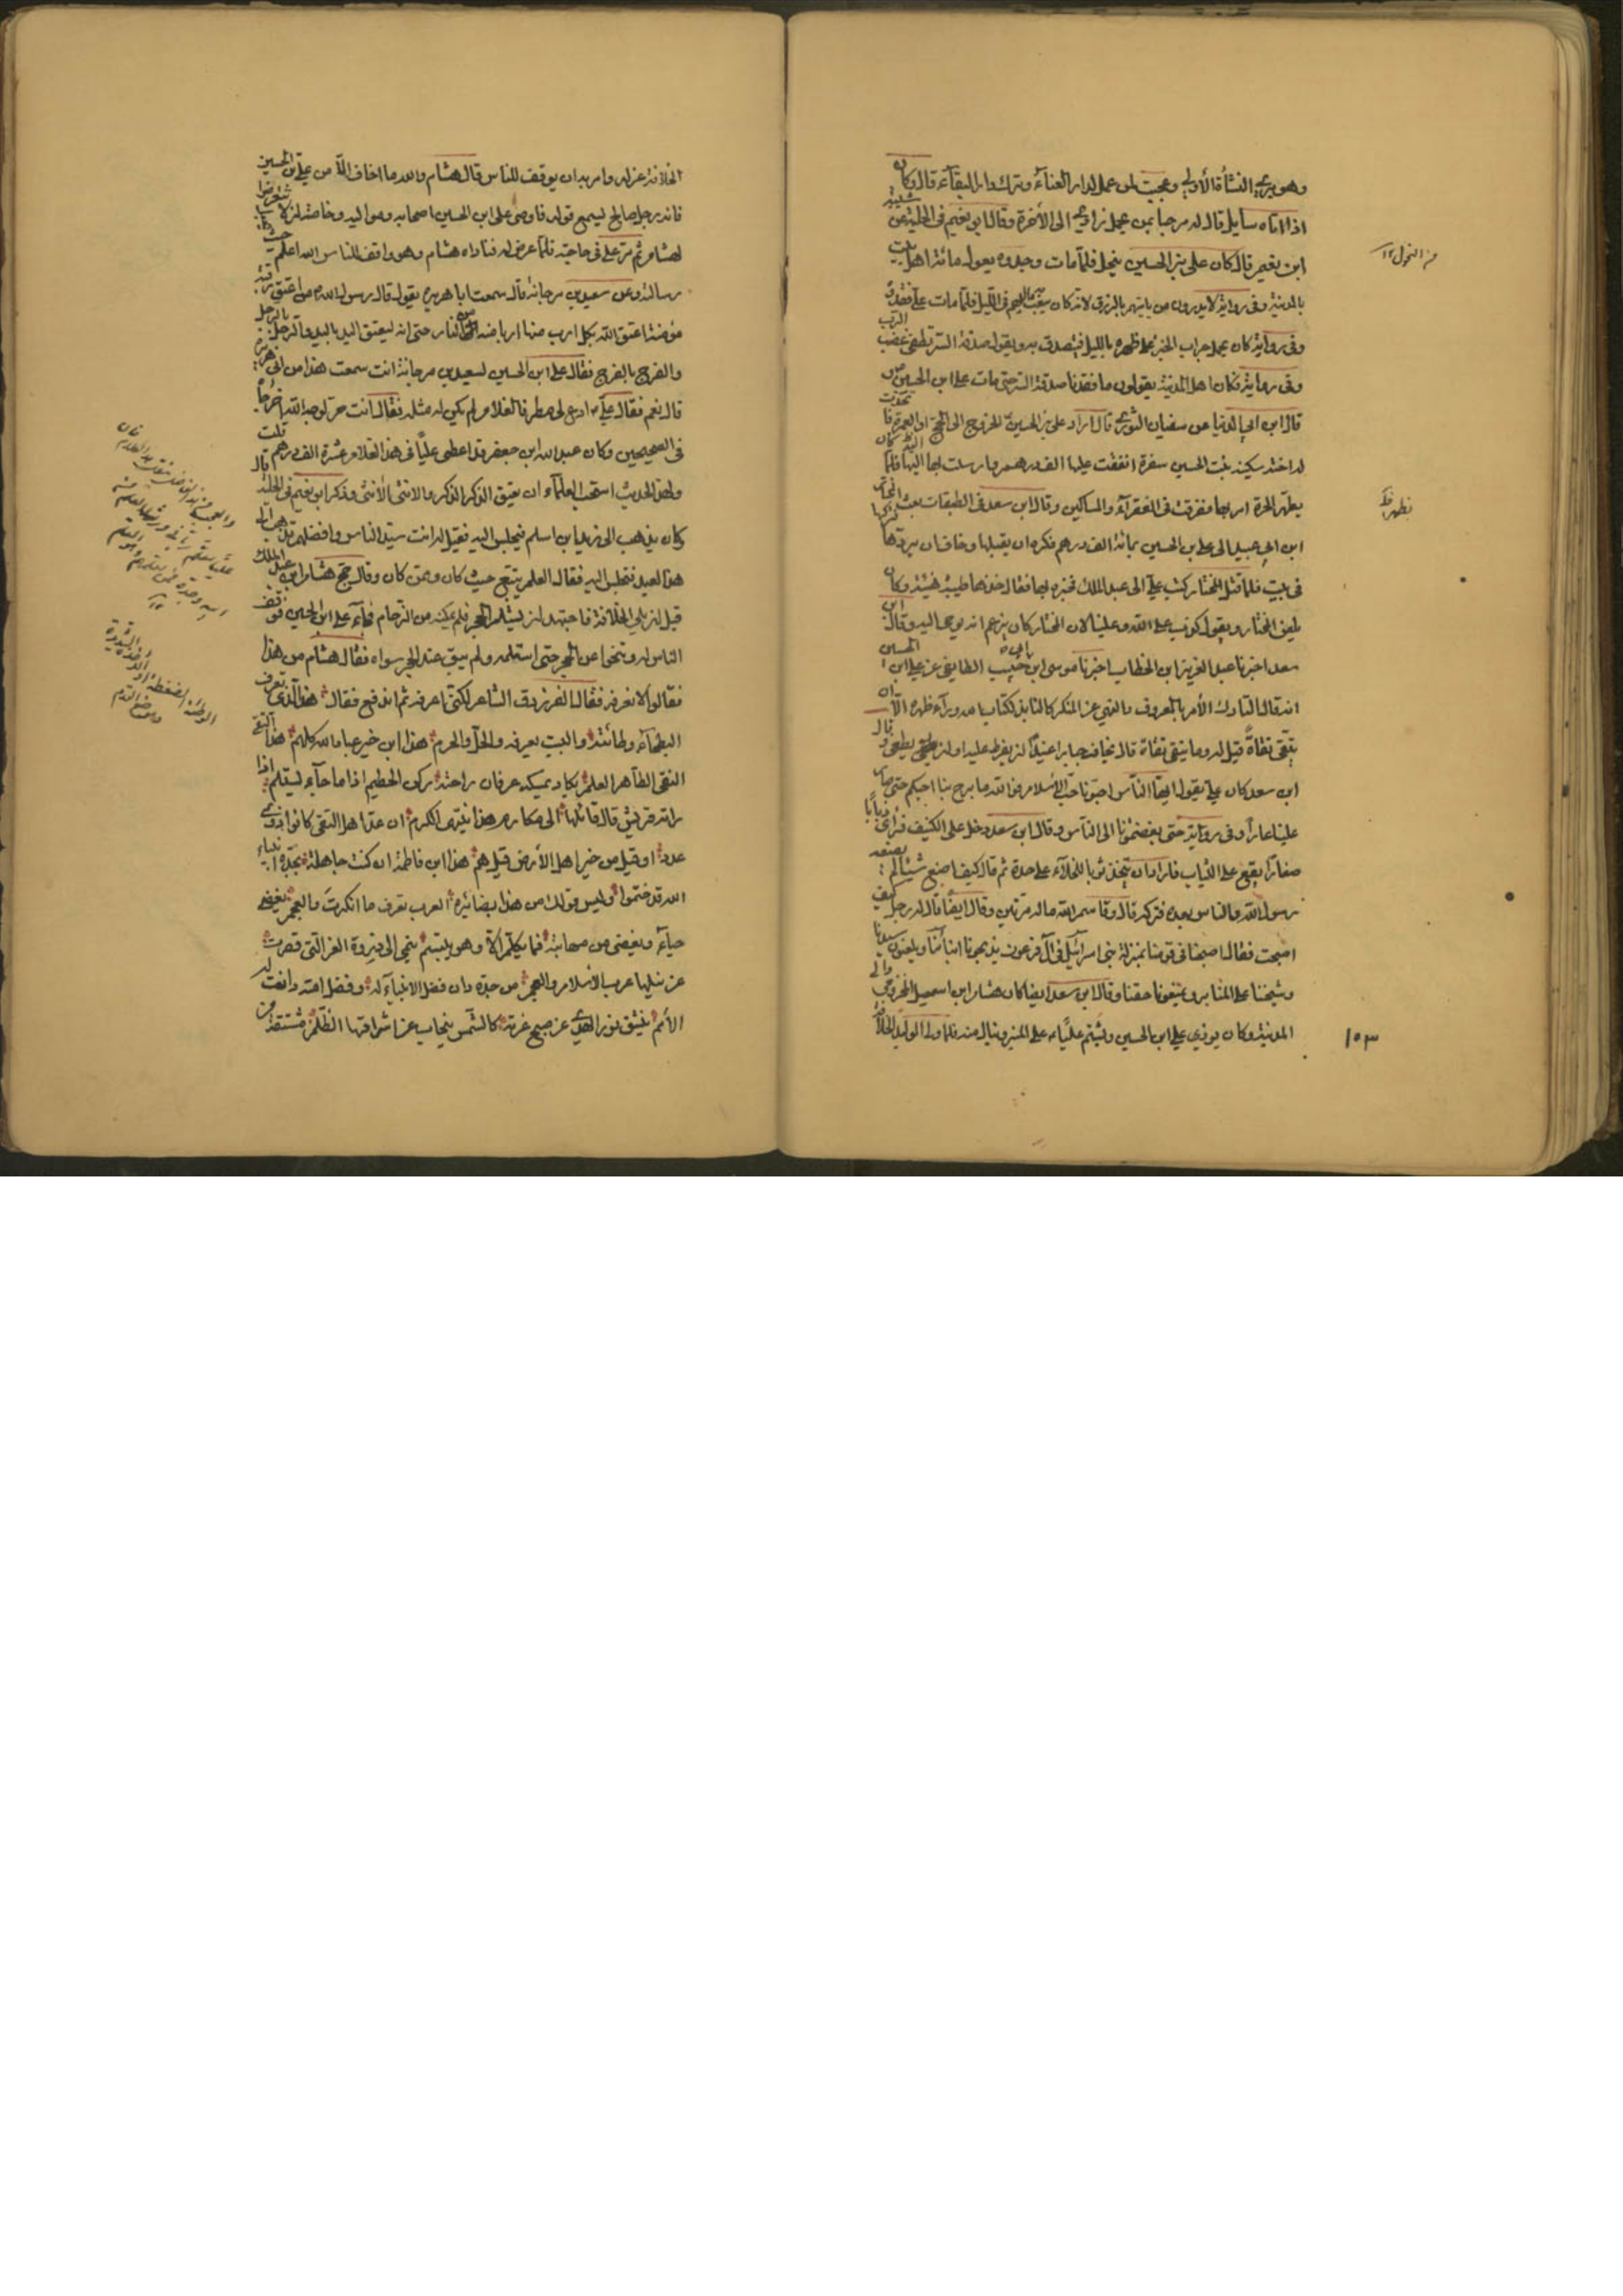 وهو يرى النشأة الأولى وعجبت لمن عمل لدار الفنآء وترك دار البقآء قال وكان
اذا اتاه سايل قال له مرحبا بمن يحمل زادى الى الأخرة وقال ابو نعيم فى الحلية عن شيبة
ابن نعيم قال كان على بن الحسين يبخل فلمآ مات وجدوه يعول مائة اهل بيت
من النحول ١٢
بالمدينة وفى رواية لا يدرون من ياتيهم بالرزق لانه كان يبعث اليهم فى الليل فلمآ مات على فقدوه
وفى رواية كان يحمل جراب الخبز على ظهره بالليل فيتصدق به ويقول صدقة السر تطفى غضب الرب
وفى رواية فكان اهل المدينة يقولون ما فقدنا صدقة السر حتى مات على ابن الحسين
قال ابن ابى الدنيا عن سفيان الثورى قال اراد على بن الحسين الخروج الى الحج او العمرة فا تخذت
له اخته سكينة بنت الحسين سفرة انفقت عليها الف درهم وارسلت بها اليه فلمآ كان
بظهر الحرة امر بها ففرقت فى الفقرآء والمساكين وقال ابن سعد فى الطبقات بعث المختار
بظهر
ابن ابى عبيد الى على بن الحسين بمائة الف درهم فكره ان يقبلها وخاف ان يردها فتركها
فى بيت فلمآ قتل المختار كتب على الى عبد الملك يخبره بها فقال خذها طيبة هنيئة وكان
يلعن المختار ويقول كذب على الله وعلينا لان المختار كان يزعم انه يوحى اليه وقال ابن
سعد اخبرنا عبد العزيز ابن الخطاب اخبرنا موسى ابن ابى حبيب الطايفى عن على ابن الحسين
انه قال التارك الأمر بالمعروف والنهى عن المنكر كالنابذ كتاب الله ورآء ظهره الآ ان
يتقى تقاة قيل له وما يتقى تقاة قال يخاف جبارا عنيدا ان يفرط عليه او ان يطغى وقال
ابن سعد كان على يقول ايها النآس احبونا حب الأسلام فوالله ما برح بنا حبكم حتى صار
علينا عارا وفى رواية حتى بغضتمونا الى النآس وقال ابن سعد دخل على الكنيف فرأى ذبابا
صغارا يقع على الثياب فاراد ان يتخذ ثوبا للخلآء على حدة ثم قال كيف اصنع شيئا لم يصنعه
رسول الله والناس بعده فتركه قال وقاسم الله ماله مرتين وقال ايضا قال له رجل كيف
اصبحت فقال اصبحنا فى قومنا بمنزلة بنى اسرائيل فى آل فرعون يذبحونا ابنآئنا ويلعنون سيدنا
وشيخنا على المنابر ويمنعونا حقنا وقال ابن سعد ايضا كان هشام ابن اسمعيل المخزومى والى
المدينة وكان يوذى على ابن الحسين ويشتم عليا على المنبر وينال منه فلما ولى الوليد الخلافة
١٥٣
الخلافة عزله وامر به ان يوقف للناس قال هشام والله ما اخاف الآ من على بن الحسين
فانه رجل صالح ليسمع قوله فاوصى على ابن الحسين اصحابه ومواليه وخاصته ان لا يتعرضوا
لهشام ثم مر على فى حاجته فلمآ عرض له فناداه هشام وهو واقف للناس الله اعلم حيث يجعل
رسالته وعن سعيد بن مرجانة قال سمعت ابا هريرة يقول قال رسول الله من اعتق رقبة
مؤمنة اعتق الله بكل ارب منها اربا منه من النار حتى انه ليعتق اليد باليد والرجل بالرجل
والفرج بالفرج فقال على ابن الحسين لسعيد بن مرجانة انت سمعت هذا من ابى هريرة
قال نعم فقال على ادع لى مطرفا لغلام لم يكن له مثله فقال انت حر لوجه الله اخرجاه
فى الصحيحين وكان عبد الله ابن جعفر قد اعطى عليا فى هذا الغلام عشرة الف درهم قلت
ولهذا الحديث استحب العلمآء ان يعتق الذكر الذكر والانثى الأنثى وذكر ابن نعيم فى الحلية قال
وكان يذهب الى زيد ابن اسلم فيجلس اليه فقيل له انت سيد الناس وافضلهم تذهب الى
هذا العبد فتجلس اليه فقال العلم يتبع حيث كان وممن كان وقال حج هشام ابن عبد الملك
قبل ان يلى الخلافة فاجتهد ان يستلم الحجر فلم يمكنه من الزحام فجآء على ابن الحسين فوقف
الناس له وتنحوا عن الحجر حتى استلمه ولم يبق عند الحجر سواه فقال هشام من هذا
فقالوا لا نعرفه فقال الفرزدق الشاعر لكنى اعرفه ثم اندفع فقال هذا الذى تعرف
البطحآء وطائته والبيت يعرفه والحل والحرم هذا ابن خير عباد الله كلهم هذا التقى
النقى الطاهر العلم يكاد يمسكه عرفان راحته ركن الحطيم اذا ما جآء ليستلم اذا
راته قريش قال قائلها الى مكارم هذا ينتهى الكرم ان عد اهل التقى كانوا ذوى
عدد او قيل من خير اهل الأرض قيل هم هذا ابن فاطمة ان كنت جاهله بجده انبياء
الله قد ختموا وليس قولك من هذا بضائره العرب تعرف ما انكرت والعجم يغضى
حيآء ويغضى من مهابته فما يكلم الآ وهو يبتسم ينمى الى ذروة العز التى قصرت
عن نيلها عرب الأسلام والعجم من جده دان فضل الانبيآء له وفضل امته دانت له
الأمم ينشق نور الهدى عن صبح غرته كالشمس ينجاب عن اشراقها الظلم مشتقة من